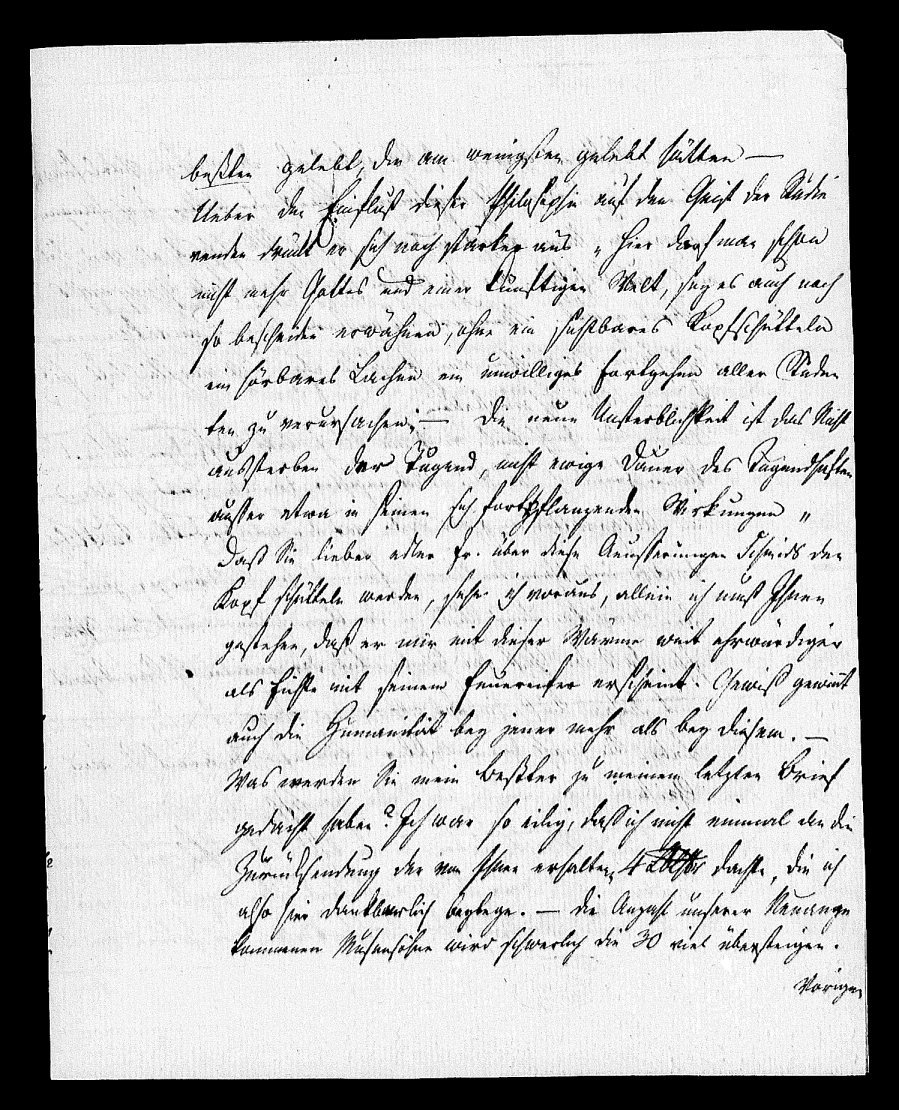 beßten gelebt, die am wenigsten gelebt hätten —
Ueber den Einfluß dieser Philosophie auf den Geist der Studie
renden drükt er sich noch stärker aus „ Hier darf man schon
nicht mehr Gottes und einer künftigen Welt, sey es auch noch
so bescheiden erwähnen, ohne ein sichtbares Kopfschütteln
ein hörbares Lachen ein unwilliges Fortgehen aller Studen
ten zu verursachen; — Die neue Unsterblichkeit ist das Nicht
aussterben der Tugend, nicht ewige Dauer des Tugendhaften
ausser etwa in seinen sich fortpflanzenden Wirkungen „
Daß Sie lieber edler Fr. über diese Aeusserungen Schmids den
Kopf schütteln werden, sehe ich voraus, allein ich muß Ihnen
gestehen, daß er mir mit dieser Wärme weit ehrwürdiger
als Fichte mit seinem Feuereifer erscheint. Gewiß gewinnt
auch die Humanität bey jener mehr als bey diesem. —
Was werden Sie mein beßter zu meinem letzten Brief
gedacht haben? Ich war so eilig, daß ich nicht einmal an die
Zurücksendung der von Ihnen erhaltenen 4 dachte, die ich
also hier dankbarlich beylege. — Die Anzahl unserer Neuange
kommenen Musensöhne wird schwerlich die 30 viel übersteigen.
Vorigen